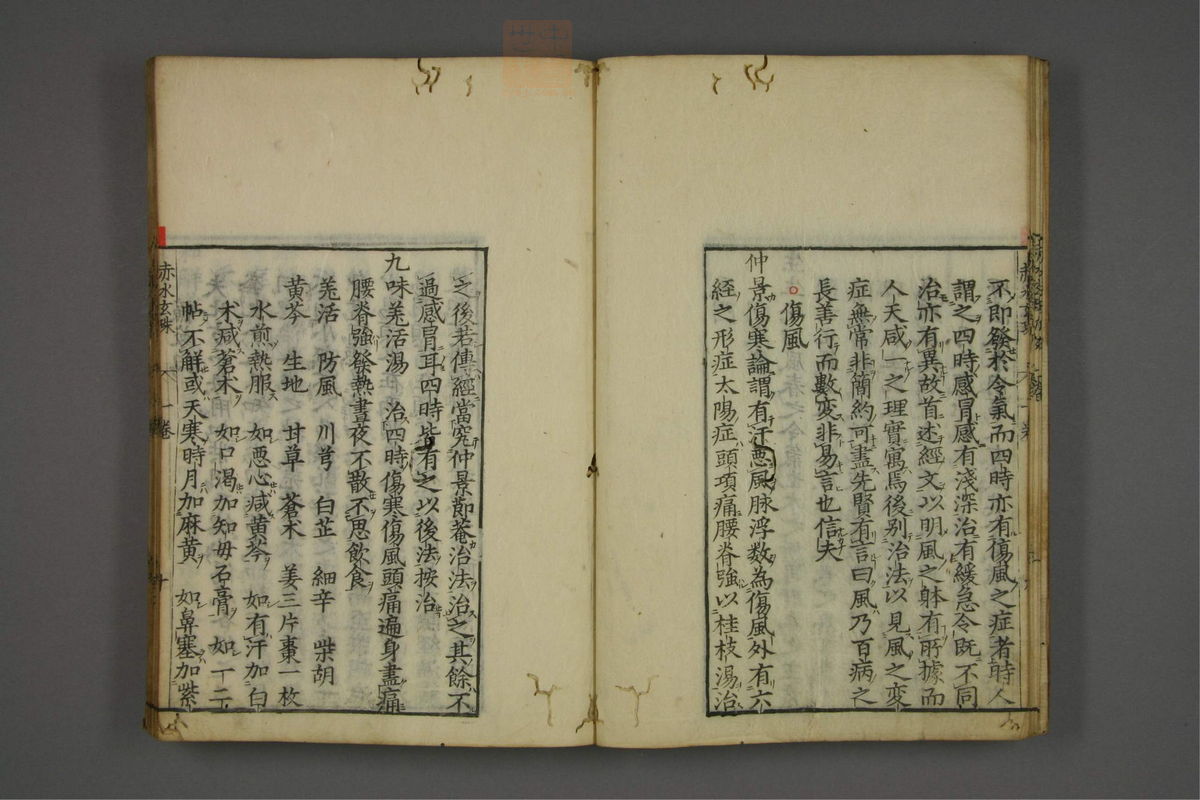 不即發於令氣而四時亦有傷風之症者時人
謂之四時感冒感有淺深治有緩急今既不同
治亦有異故首述經文以明風之躰有所據而
人天咸一之理實寓焉後别治法以見風之変
症無常非簡約可盡先賢有言曰風乃百病之
長善行而數変非易言也信夫
傷風
仲景傷寒論謂有汗悪風脉浮数為傷風外有六
経之形症太陽症頭項痛腰脊強以桂枝湯治
之後若傳經當究仲景節菴治法治之其餘不
過感冒耳四時皆有之以後法按治
九味羗活湯 治四時傷寒傷風頭痛遍身盡痛
腰脊強發熱晝夜不散不思飲食
羗活 防風 川芎 白芷 細辛 柴胡
黄芩 生地 甘草 蒼朮 姜三片棗一枚
水煎熱服 如悪心減黄芩 如有汗加白
朮减蒼朮 如口渴加知毋石膏 如一二
帖不解或天寒時月加麻黄 如鼻塞加紫
赤水玄珠 一卷 十